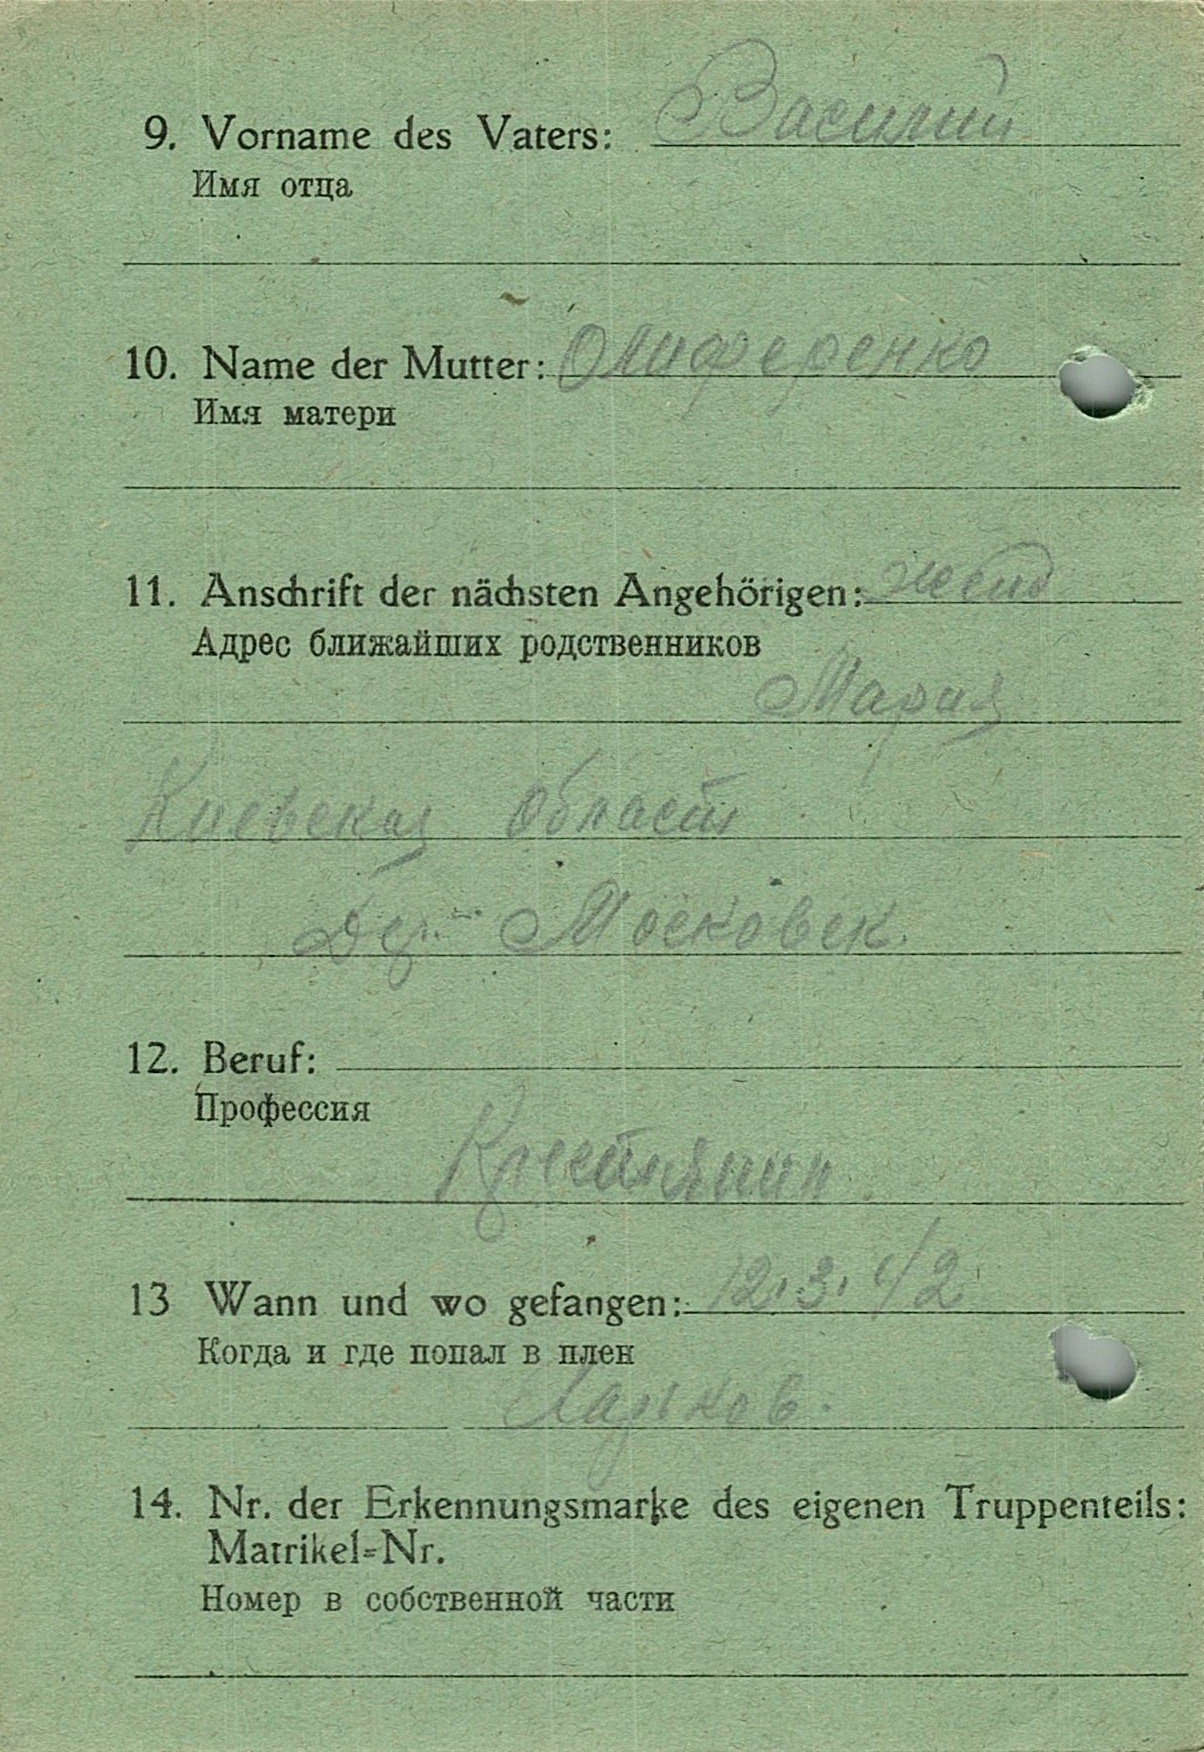 9. Vorname des Vaters: Василий
Имя отца
10. Name der Mutter: Олиференко
Имя матери
11. Anschrift der nächsten Angehörigen: жена
Адрес ближайших родственников
Мария
Киевская област
Дер. Московск.
12. Beruf:
Профессия
Крестянин
13 Wann und wo gefangen: 12.3.42
Когда и где попал в плен
Харьков.
14. Nr. der Erkennungsmarke des eigenen Truppenteils:
Matrikel-Nr.
Номер в собственной части